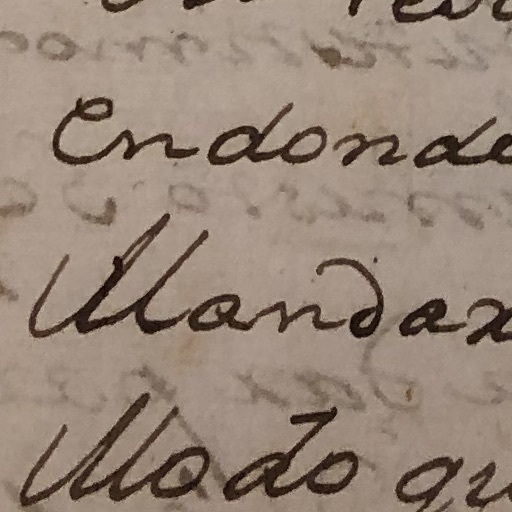 Endonde
Mandax
Modo qu